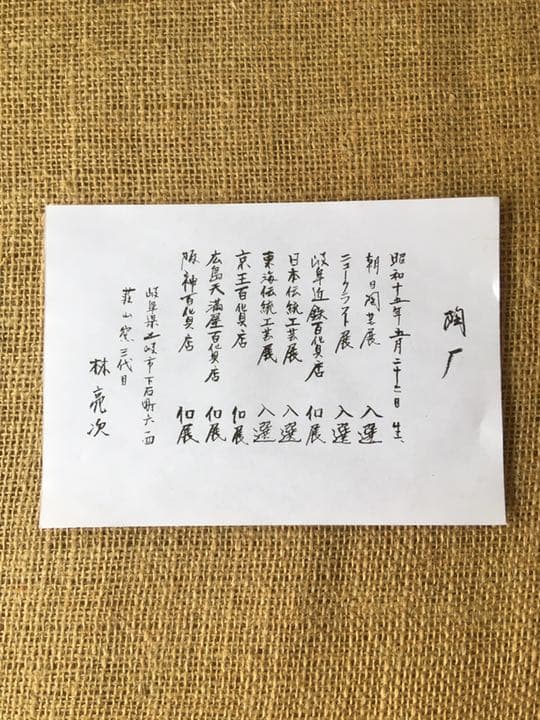 陶歴
昭和十五年五月二十二日生
朝日陶芸展 入選
ニュークラフト展 入選
岐阜近鉄百貨店 個展
日本伝統工芸展 入選
東海伝統工芸展 入選
京王百貨店 個展
広島天満屋百貨店 個展
阪神百貨店 個展
岐阜県土岐市下石町六一西
荘山窯三代目
林亮次